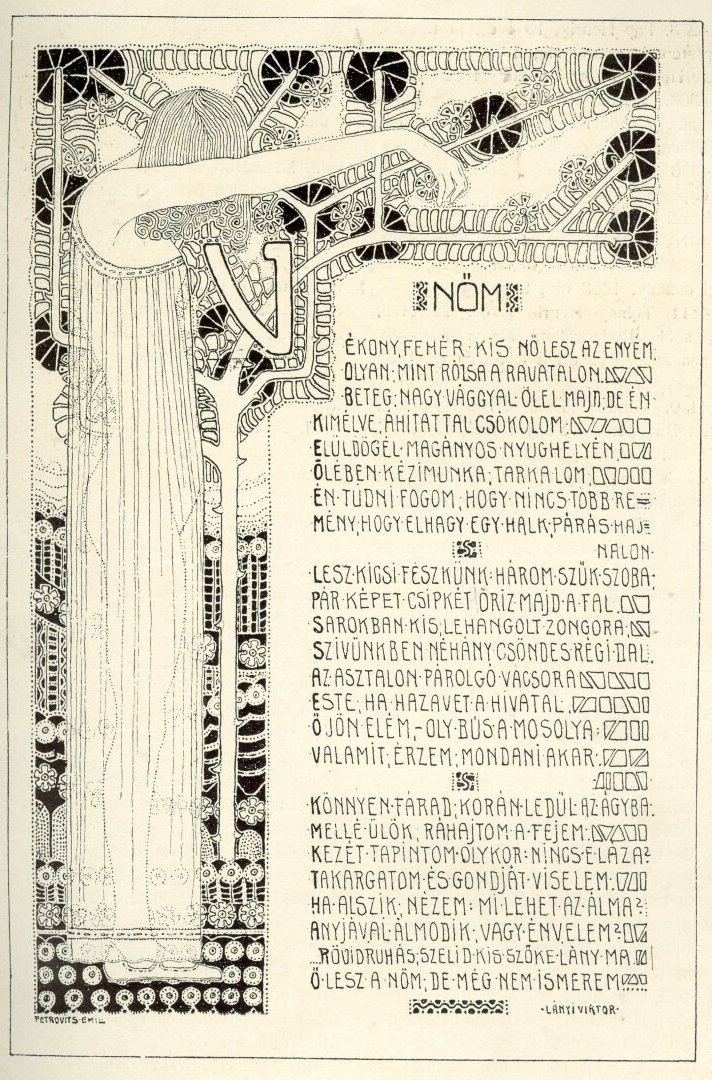 NŐM
VÉKONY, FEHÉR KIS NŐ LESZ AZ ENYÉM.
OLYAN, MINT RÓZSA A RAVATALON.
BETEG; NAGY VÁGGYAL ÖLEL MAJD, DE ÉN
KIMÉLVE, ÁHITATTAL CSÓKOLOM;
ELÜLDÖGÉL MAGÁNYOS NYUGHELYÉN,
ÖLÉBEN KÉZIMUNKA, TARKA LOM,
ÉN TUDNI FOGOM, HOGY NINCS TÖBB RE=
MÉNY, HOGY ELHAGY EGY HALK, PÁRÁS HAJ=
NALON.
LESZ KICSI FÉSZKÜNK: HÁROM SZŰK SZOBA;
PÁR KÉPET CSIPKÉT ŐRIZ MAJD A FAL.
SAROKBAN KIS, LEHANGOLT ZONGORA,
SZIVÜNKBEN NÉHÁNY CSÖNDES RÉGI DAL.
AZ ASZTALON PÁROLGÓ VACSORA
ESTE, HA HAZAVET A HIVATAL.
Ő JÖN ELÉM, – OLY BÚS A MOSOLYA:
VALAMIT, ÉRZEM, MONDANI AKAR.
KÖNNYEN FÁRAD; KORÁN LEDŰL AZ ÁGYBA.
MELLÉ ÜLÖK, RÁHAJTOM A FEJEM.
KEZÉT TAPINTOM OLYKOR: NINCS-E LÁZA?
TAKARGATOM ÉS GONDJÁT VISELEM.
HA ALSZIK, NÉZEM: MI LEHET AZ ÁLMA?
ANYJÁVAL ÁLMODIK, VAGY ÉNVELEM?
...RÖVIDRUHÁS, SZELID KIS SZŐKE LÁNY MA.
Ő LESZ A NŐM, DE MÉG NEM ISMEREM
-LÁNYI VIKTOR-
PETROVITS·EMIL